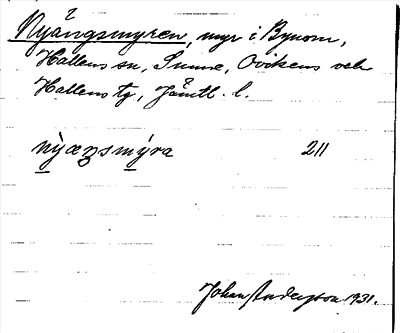 Nyängsmyren, myr i Byxom,
Hallens sn, Sunne, Ovikens och
Hallens tg, Jämtl. l.
nỳæŋsmýra 211
Johan Anderzson 1931.